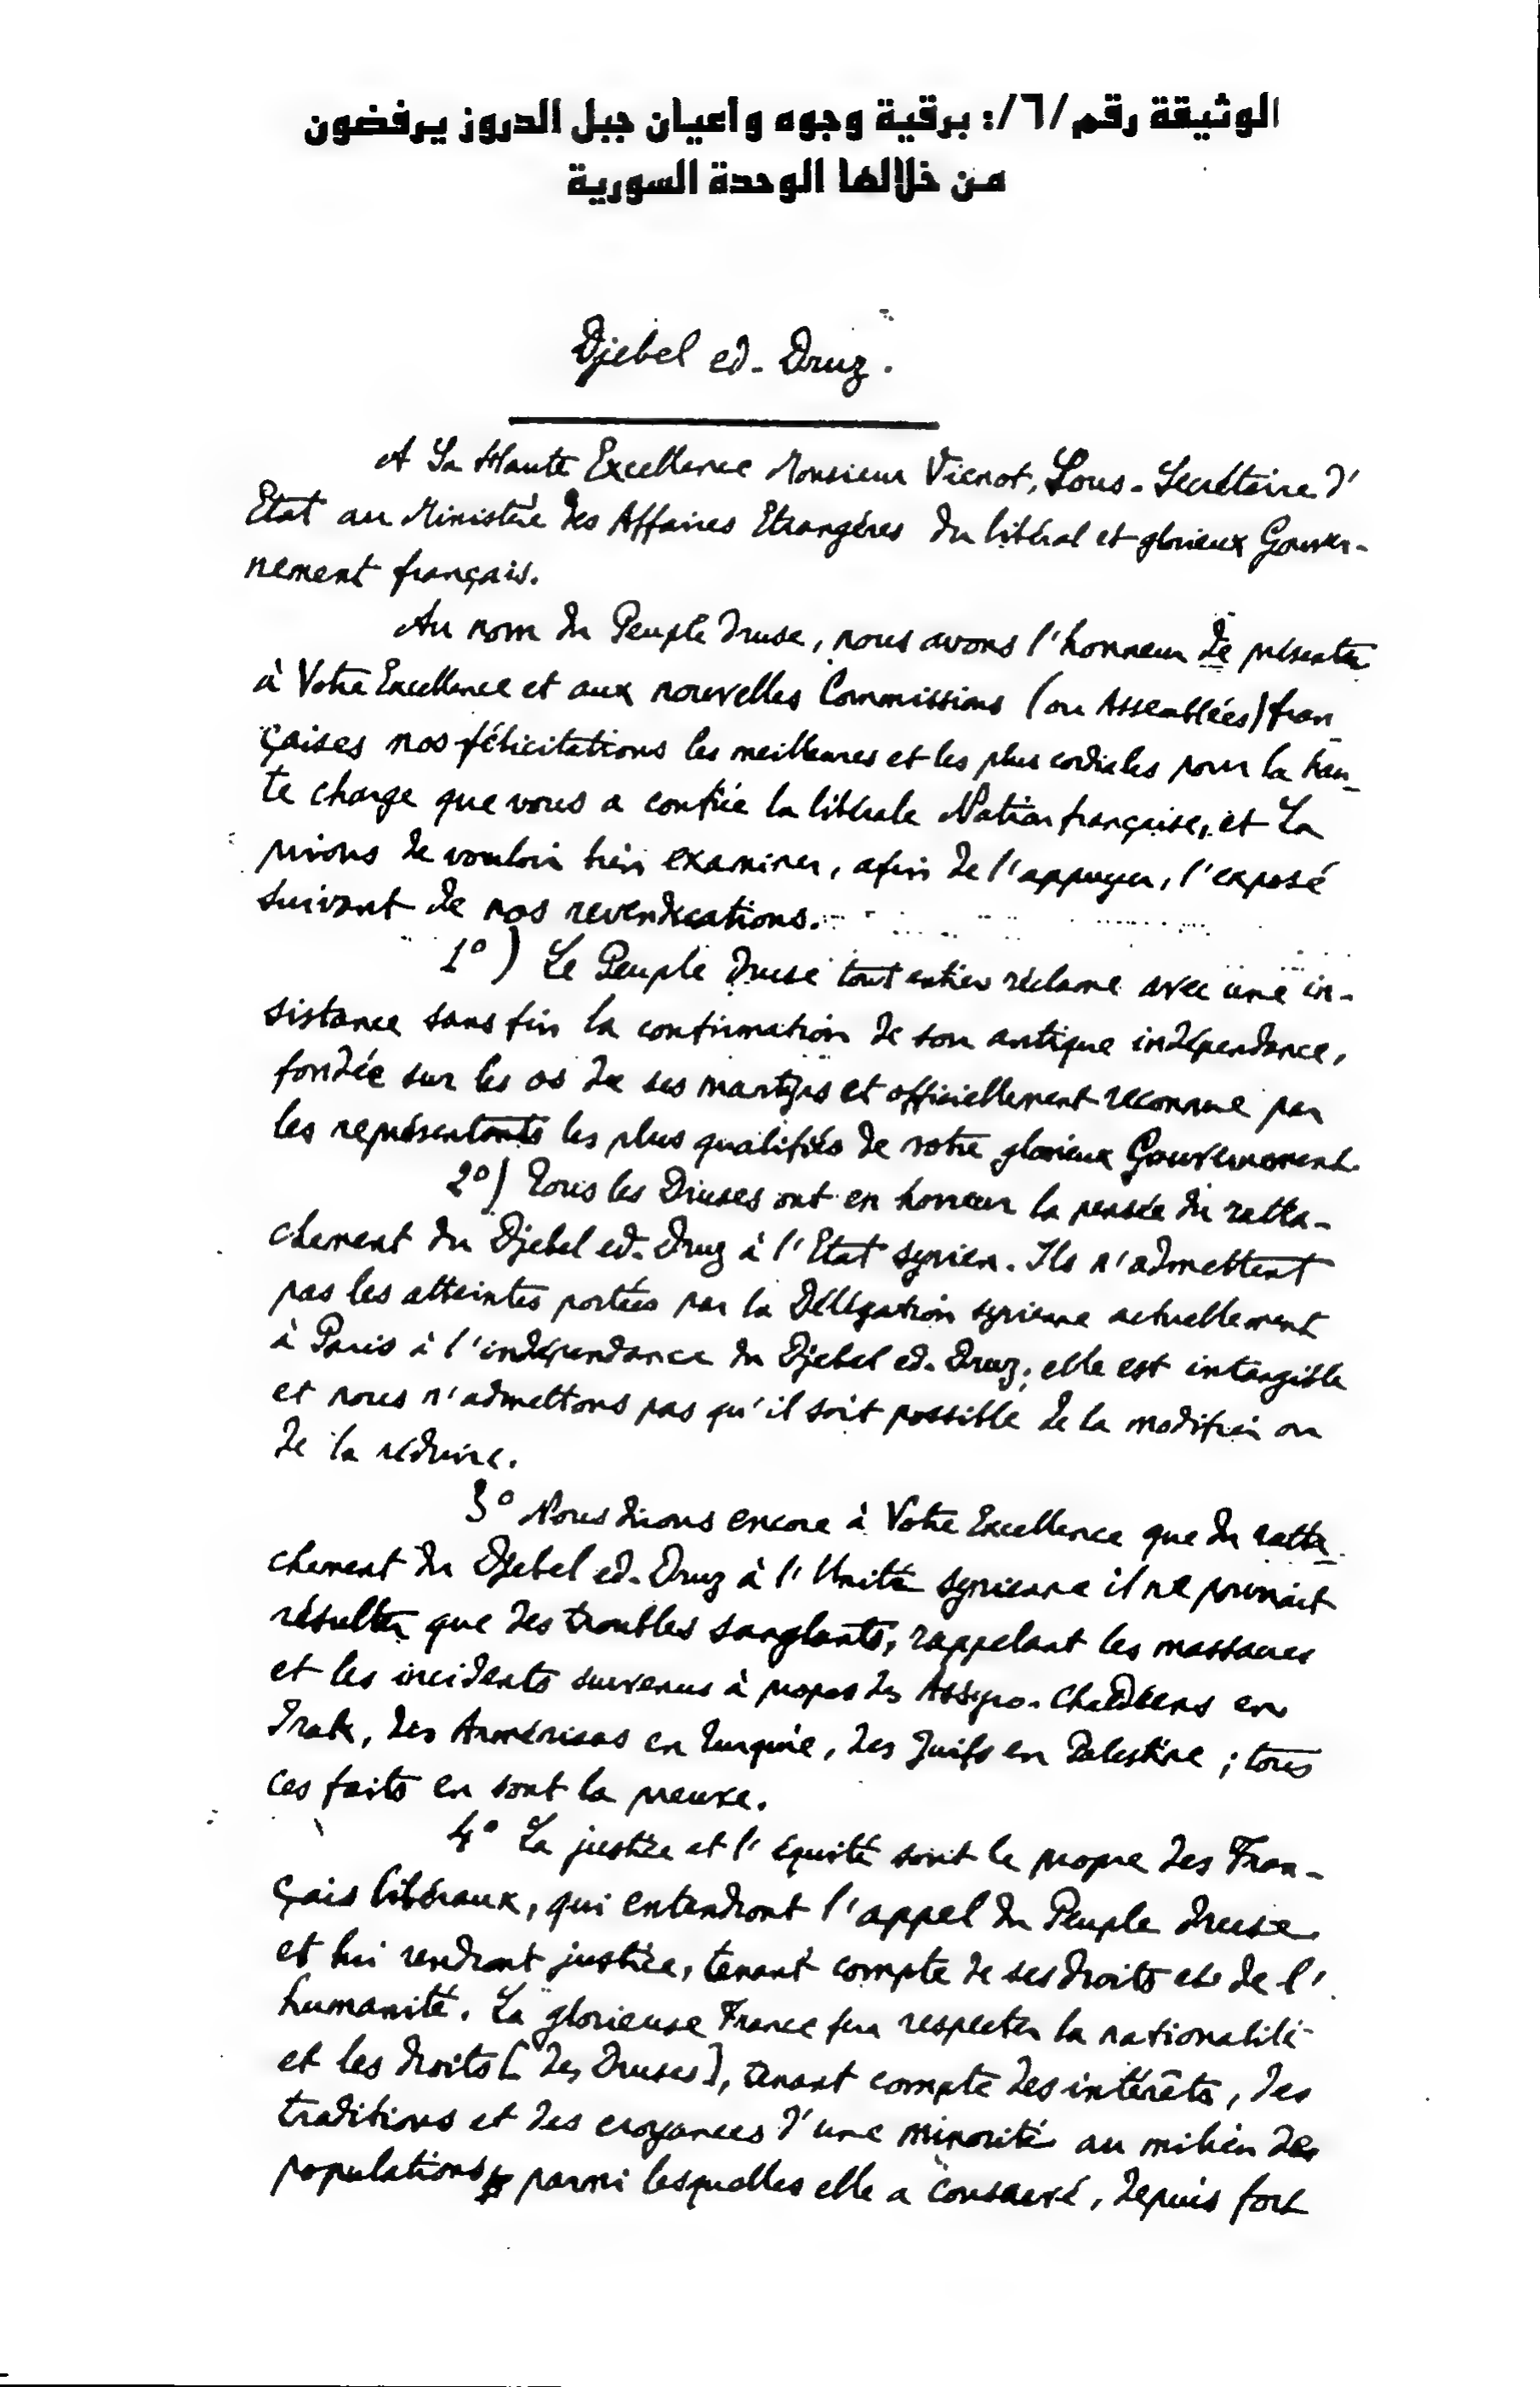 الوثيقة رقم /٦/: برقية وجوه وأعيان جبل الدروز يرفضون
من خلالها الوحدة السورية
Djebel ed-Druz.
A Sa Haute Excellence Monsieur Vienot, Sous-Secrétaire d'
Etat au Ministère des Affaires Etrangères du libéral et glorieux Gouver-
nement français.
Au nom du Peuple druse, nous avons l'honneur de présenter
à Votre Excellence et aux nouvelles Commissions (ou Assemblées) fran-
çaises nos félicitations les meilleures et les plus cordiales pour la hau-
te charge que vous a confiée la libérale Nation française, et La
prions de vouloir bien examiner, afin de l'appuyer, l'exposé
suivant de nos revendications.
1°) Le Peuple Druse tout entier réclame avec une in-
sistance sans fin la confirmation de son antique indépendance,
fondée sur les os de ses martyrs et officiellement reconnue par
les représentants les plus qualifiés de votre glorieux Gouvernement.
2°) Tous les Druses ont en horreur la pensée du ratta-
chement du Djebel ed-Druz à l'Etat syrien. Ils n'admettent
pas les atteintes portées par la Délégation syrienne actuellement
à Paris à l'indépendance du Djebel ed-Druz; elle est intangible
et nous n'admettons pas qu'il soit possible de la modifier ou
de la réduire.
3° Nous dirons encore à Votre Excellence que du ratta-
chement du Djebel ed-Druz à l'Unité syrienne il ne pourrait
résulter que des troubles sanglants, rappelant les massacres
et les incidents survenus à propos des Assyro-Chaldéens en
Irak, des Arméniens en Turquie, des Juifs en Palestine ; tous
ces faits en sont la preuve.
4° La justice et l'équité sont le propre des Fran-
çais libéraux, qui entendront l'appel du Peuple druse
et lui rendront justice, tenant compte de ses droits et de l'
humanité. La glorieuse France fera respecter la nationalité
et les droits [des Druses], tenant compte des intérêts, des
traditions et des croyances d'une minorité au milieu des
populations parmi lesquelles elle a consacré, depuis fort